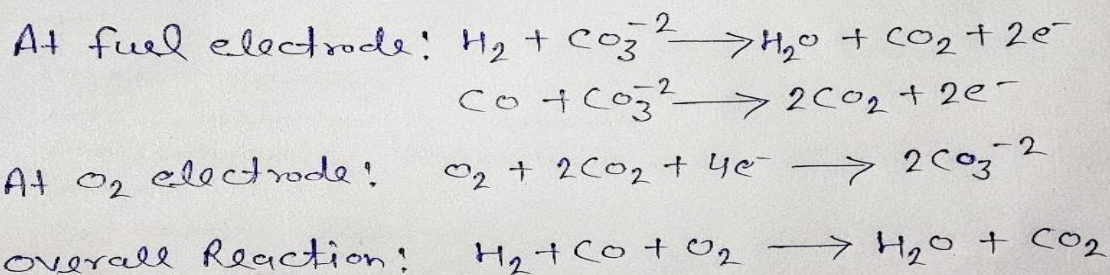 At fuel electrode: H₂ + CO₃⁻² → H₂O + CO₂ + 2e⁻
CO + CO₃⁻² → 2CO₂ + 2e⁻
At O₂ electrode: O₂ + 2CO₂ + 4e⁻ → 2CO₃⁻²
Overall Reaction: H₂ + CO + O₂ → H₂O + CO₂